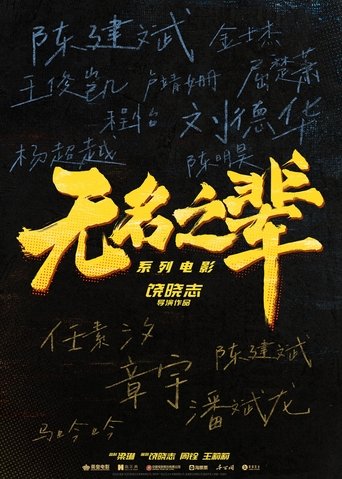 陈建斌 金士杰
王俊凯 卢靖姗 屈楚萧
程怡 刘德华
杨超越 陈明昊
无名之辈
系列电影
饶晓志
导演作品
任素汐 陈建斌
章宇
潘斌龙
马吟吟
梁琳 饶晓志 周铨 王莉莉